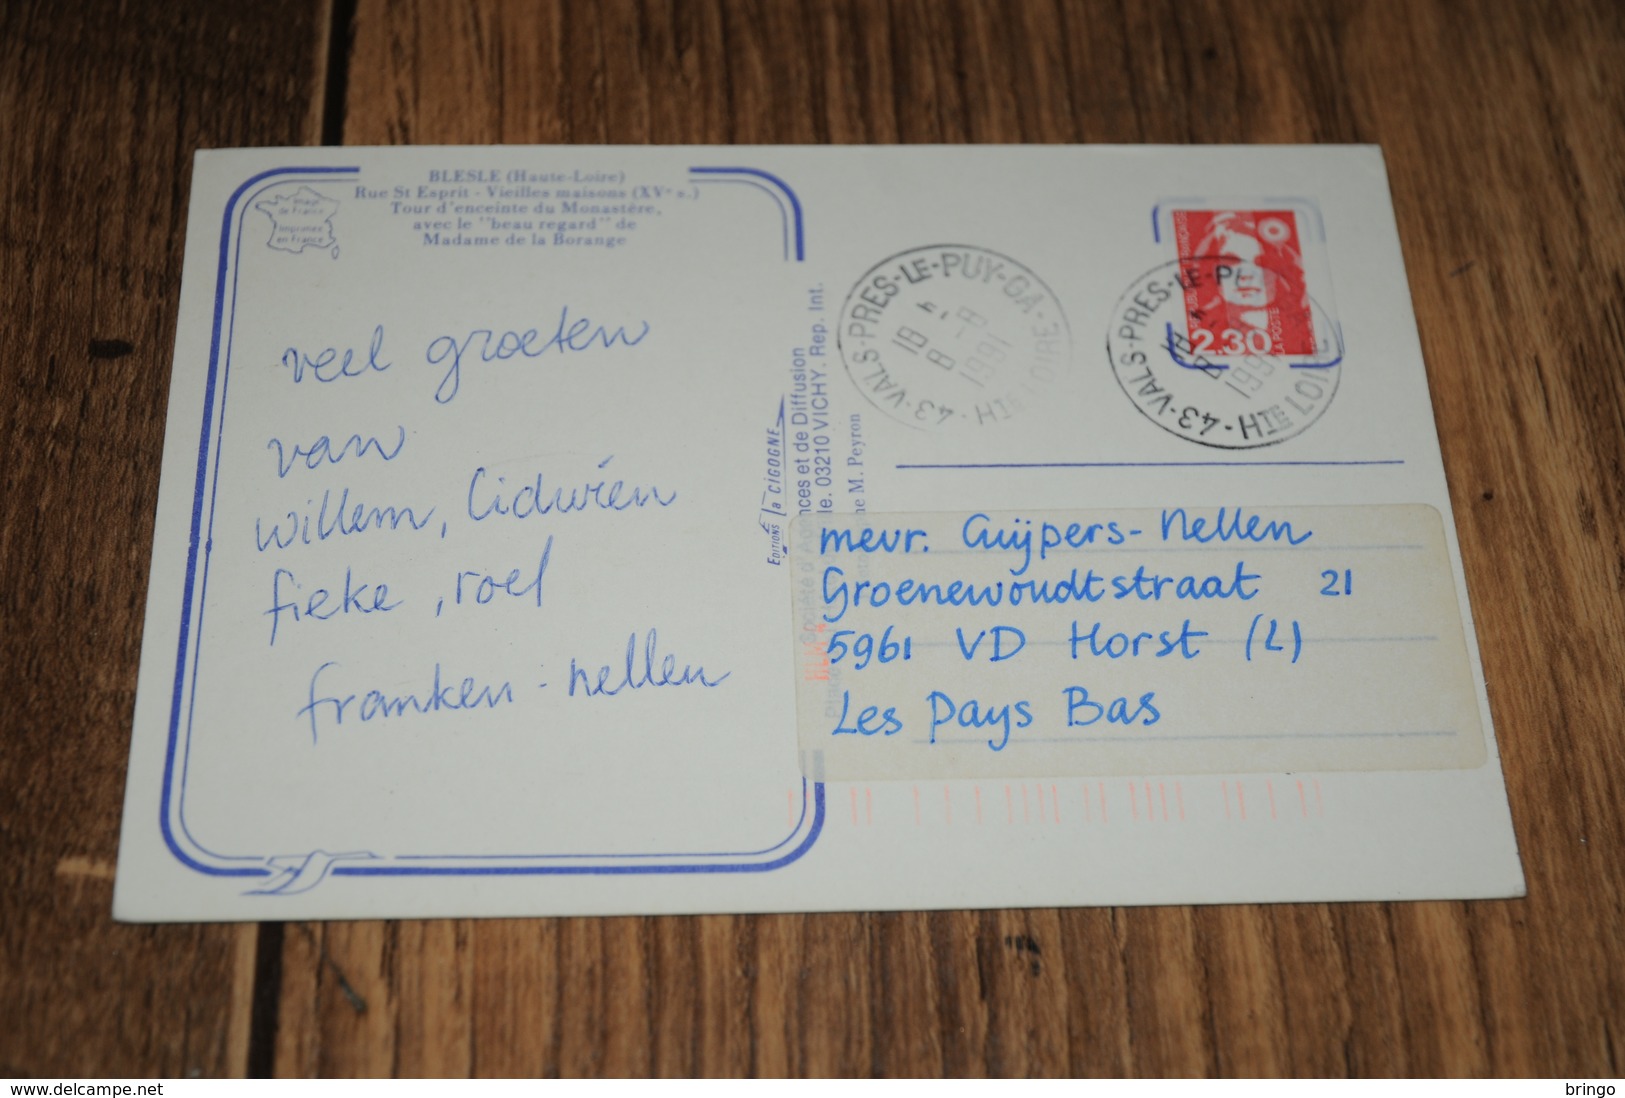 BLESLE (Haute-Loire)
Rue St Esprit - Vieilles maisons (XVe s.)
Tour d'enceinte du Monastère,
avec le "beau regard" de
Madame de la Borange
Image
de France
Imprimée
en France
veel groeten
van
willem, Lidwien
fieke, roel
franken - nellen
EDITIONS la CIGOGNE
et de Diffusion
03210 VICHY. Rep. Int.
M. Peyron
43-VALS-PRES-LE-PUY-GA-HTE LOIRE
18 H
8 - 8
1991
43-VALS-PRES-LE-
HTE LOIRE
2,30
LA POSTE
mevr. Cuijpers-Nellen
Groenewoudtstraat 21
5961 VD Horst (L)
Les Pays Bas
www.delcampe.net
bringo